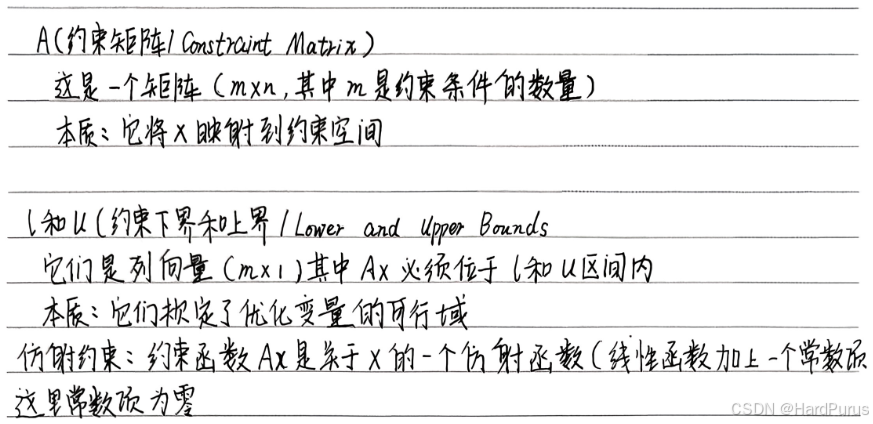 A(约束矩阵/Constraint Matrix)
这是一个矩阵(m×n,其中m是约束条件的数量)
本质:它将x映射到约束空间
l和U(约束下界和上界/Lower and Upper Bounds
它们是列向量(m×1)其中Ax必须位于l和U区间内
本质:它们规定了优化变量的可行域
仿射约束:约束函数Ax是关于x的一个仿射函数(线性函数加上一个常数项
这里常数项为零
CSDN @HardPurus